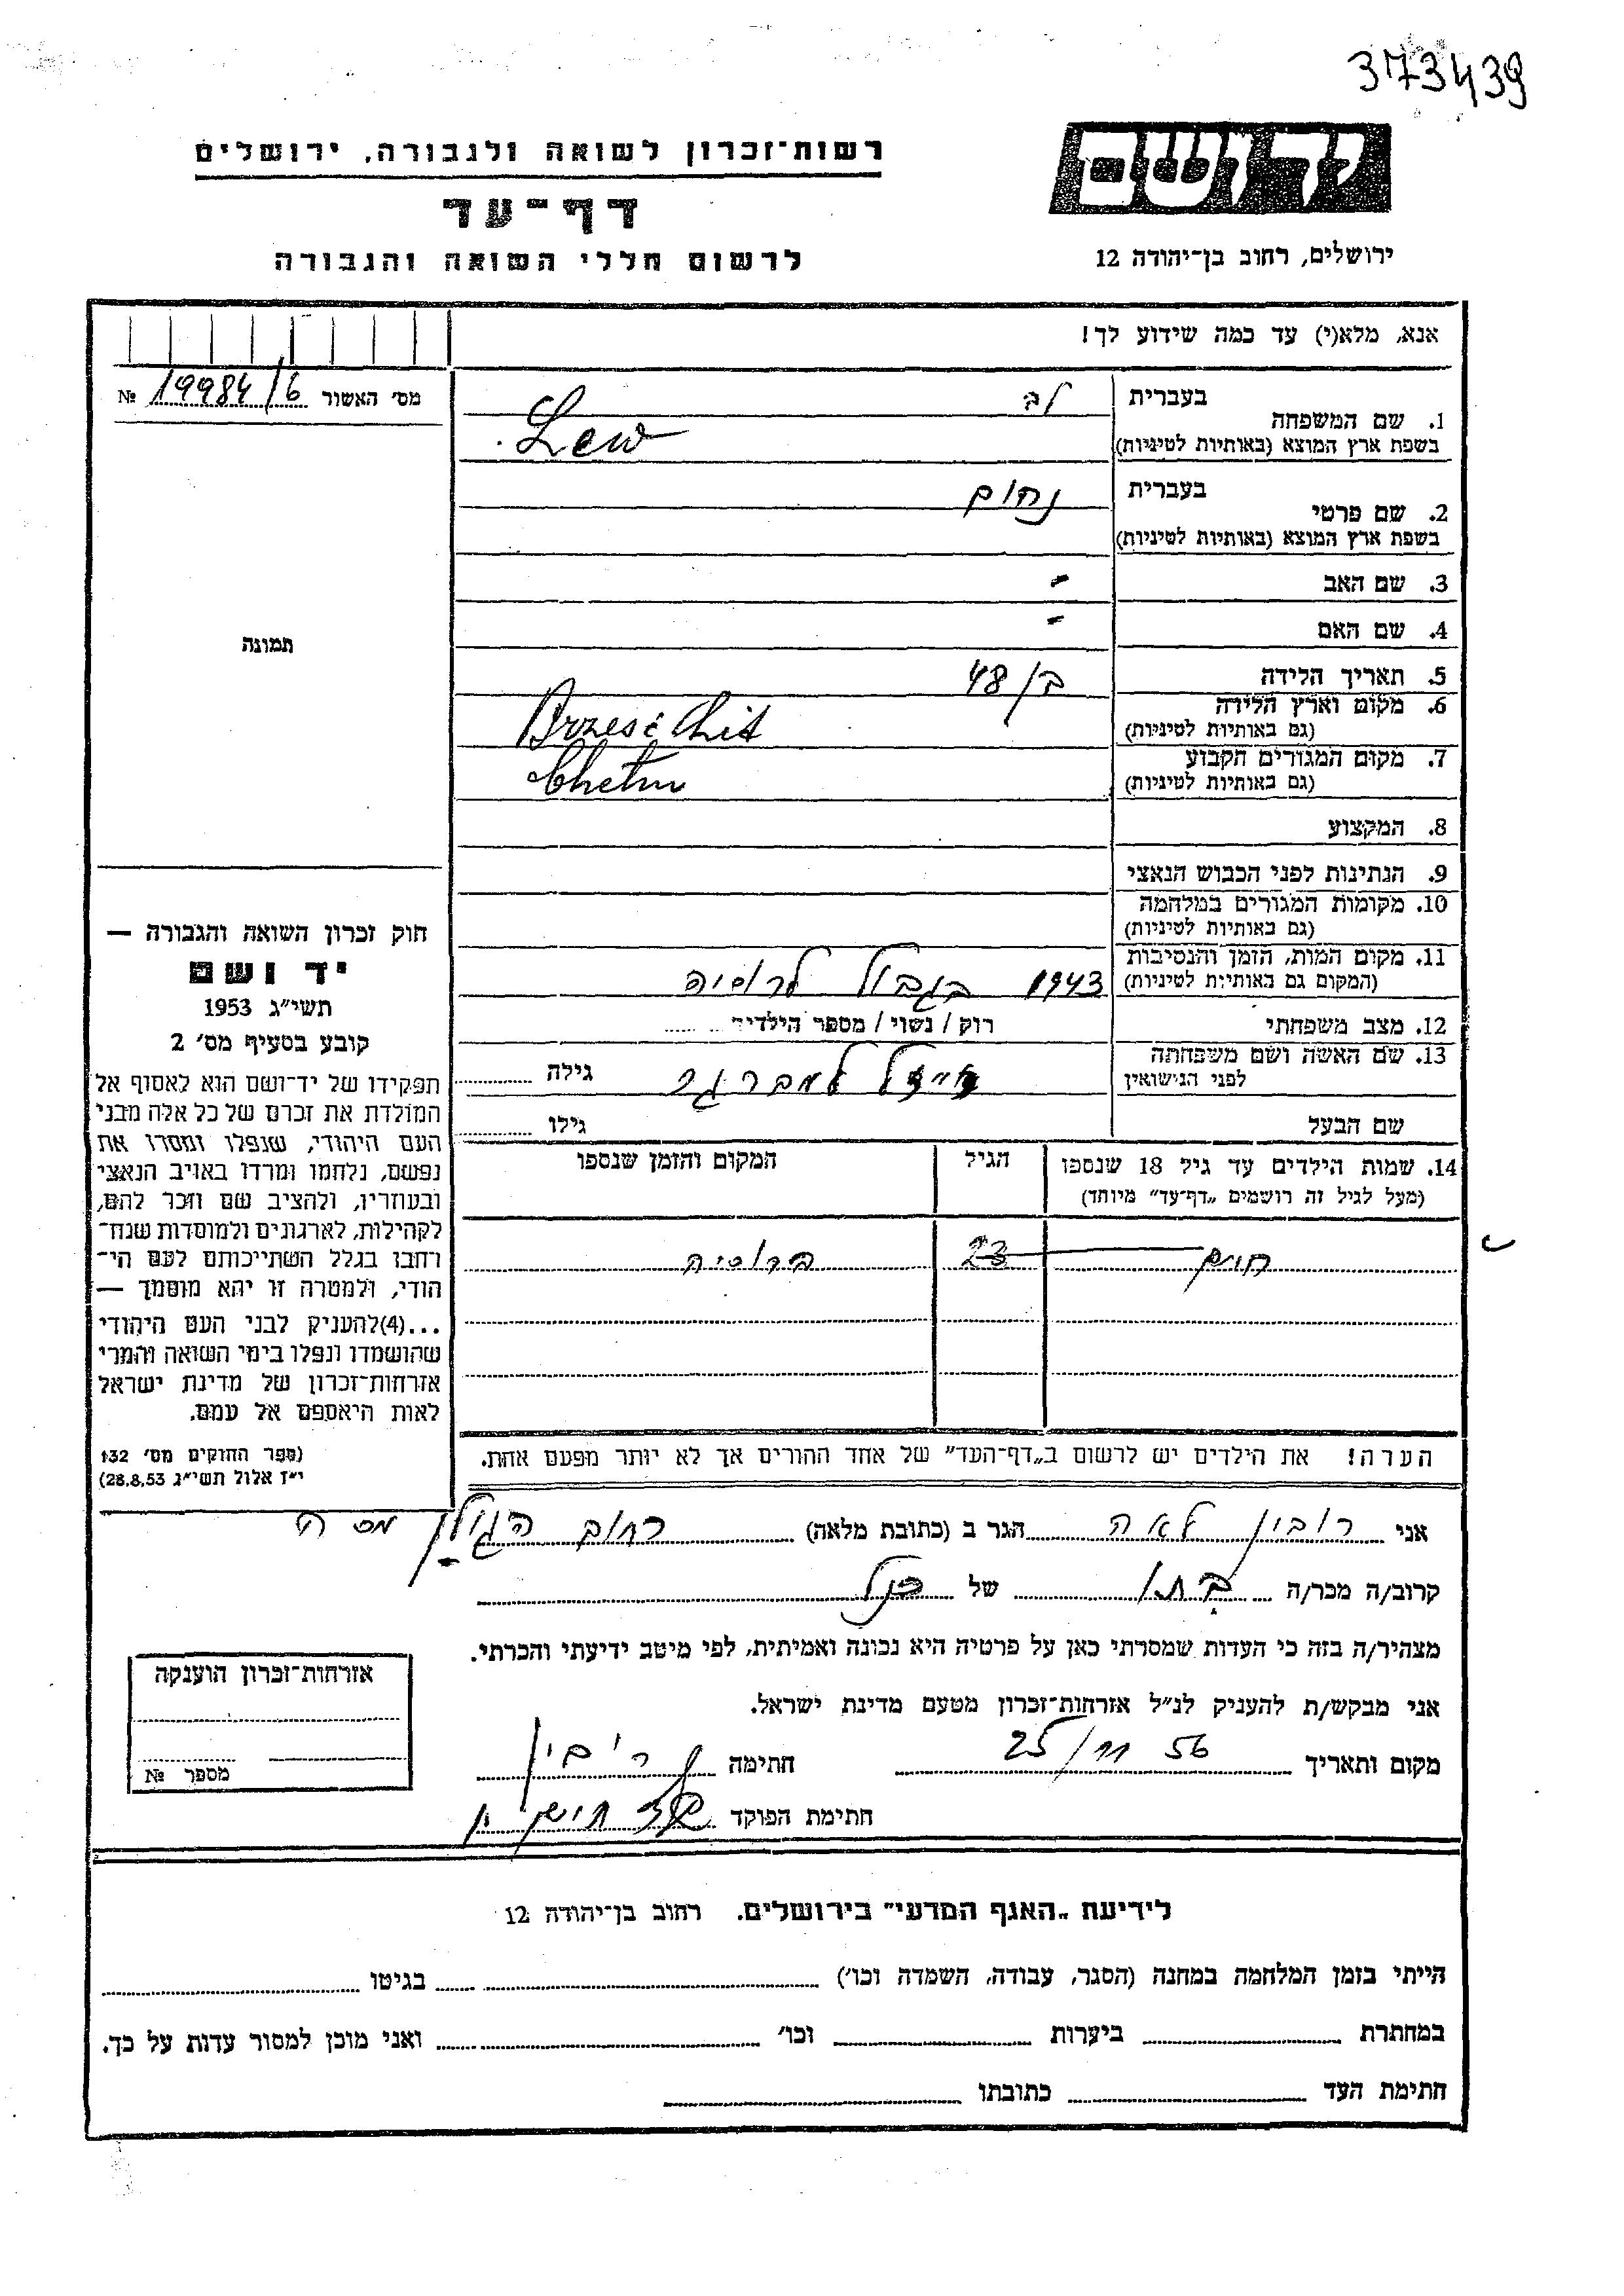 373439
יד ושם
רשות־זכרון לשואה ולגבורה, ירושלים
דף־עד
לרשום חללי השואה והגבורה
ירושלים, רחוב בן־יהודה 12
אנא, מלא(י) עד כמה שידוע לך!
מס׳ האשור 19984/6 №
תמונה
1. שם המשפחה
בעברית לב
בשפת ארץ המוצא (באותיות לטיניות) Lew
2. שם פרטי
בעברית נחום
בשפת ארץ המוצא (באותיות לטיניות)
3. שם האב -
4. שם האם -
5. תאריך הלידה בן 48
6. מקום וארץ הלידה
(גם באותיות לטיניות) Brześć Lit
7. מקום המגורים הקבוע
(גם באותיות לטיניות) Chełm
8. המקצוע
9. הנתינות לפני הכבוש הנאצי
10. מקומות המגורים במלחמה
(גם באותיות לטיניות)
11. מקום המות, הזמן והנסיבות
(המקום גם באותיות לטיניות) 1943 בגבול לרוסיה
12. מצב משפחתי רוק / נשוי / מספר הילדים
13. שם האשה ושם משפחתה
לפני הנישואין למברגר גילה
שם הבעל גילו
14. שמות הילדים עד גיל 18 שנספו
(מעל לגיל זה רושמים „דף־עד״ מיוחד)
הגיל
המקום והזמן שנספו
חיים 23 ברוסיה
הערה! את הילדים יש לרשום ב„דף־העד״ של אחד ההורים אך לא יותר מפעם אחת.
חוק זכרון השואה והגבורה —
יד ושם
תשי״ג 1953
קובע בסעיף מס׳ 2
תפקידו של יד־ושם הוא לאסוף אל
המולדת את זכרם של כל אלה מבני
העם היהודי, שנפלו ומסרו את
נפשם, נלחמו ומרדו באויב הנאצי
ובעוזריו, ולהציב שם וזכר להם,
לקהילות, לארגונים ולמוסדות שנח־
רחבו בגלל השתייכותם לעם הי־
הודי, ולמטרה זו יהא מוסמך —
...(4)להעניק לבני העם היהודי
שהושמדו ונפלו בימי השואה והמרי
אזרחות־זכרון של מדינת ישראל
לאות היאספם אל עמם.
(ספר החוקים מס׳ 132
י״ז אלול תשי״ג 28.8.53)
אני רובין לאה הגר ב (כתובת מלאה) רחוב הגולן מס ה
קרוב/ה מכר/ה בתו של הנ״ל
מצהיר/ה בזה כי העדות שמסרתי כאן על פרטיה היא נכונה ואמיתית, לפי מיטב ידיעתי והכרתי.
אני מבקש/ת להעניק לנ״ל אזרחות־זכרון מטעם מדינת ישראל.
מקום ותאריך 25/11 56 חתימה ל רובין
חתימת הפוקד
אזרחות־זכרון הוענקה
מספר №
לידיעת „האגף המדעי״ בירושלים. רחוב בן־יהודה 12
הייתי בזמן המלחמה במחנה (הסגר, עבודה, השמדה וכו׳) בגיטו
במחתרת ביערות וכו׳ ואני מוכן למסור עדות על כך.
חתימת העד כתובתו